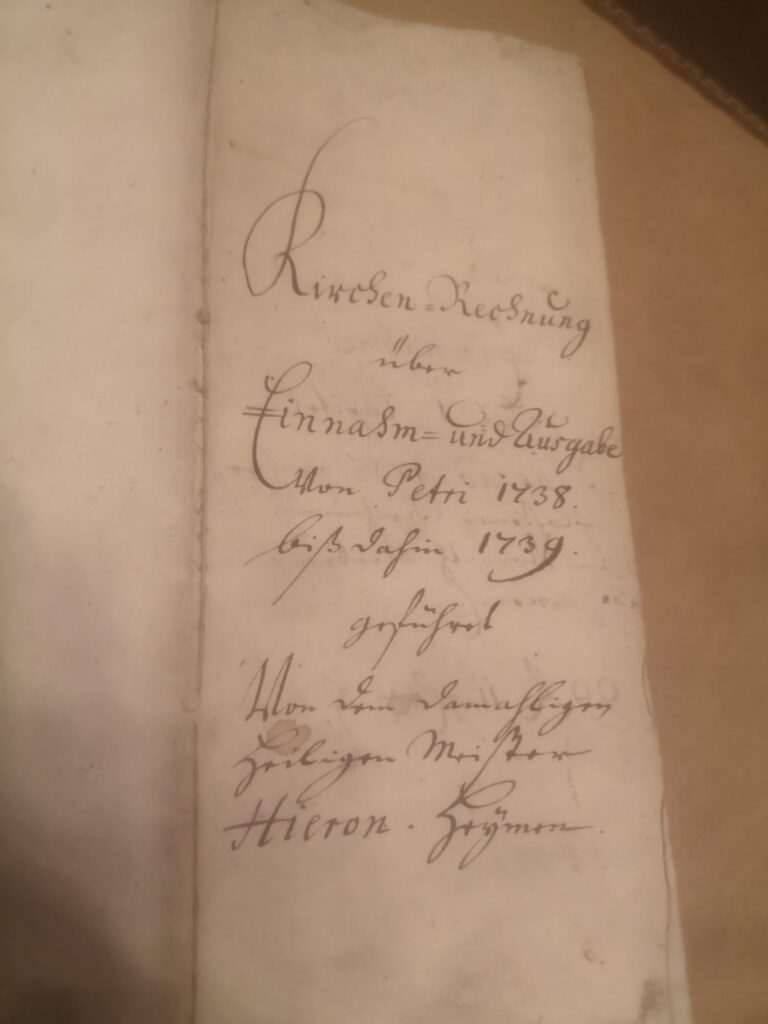 Kirchen-Rechnung
über
Einnahm= und Ausgabe
Von Petri 1738.
biß dahin 1739.
geführet
Von dem damahligen
Heiligen Meister
Hieron. Heÿmen.